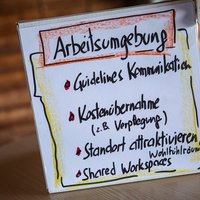 Arbeitsumgebung
• Guidelines Kommunikation
• Kostenübernahme
(z.B. Verpflegung)
• Standort attraktivieren
Wohlfühlräume
• Shared Workspaces